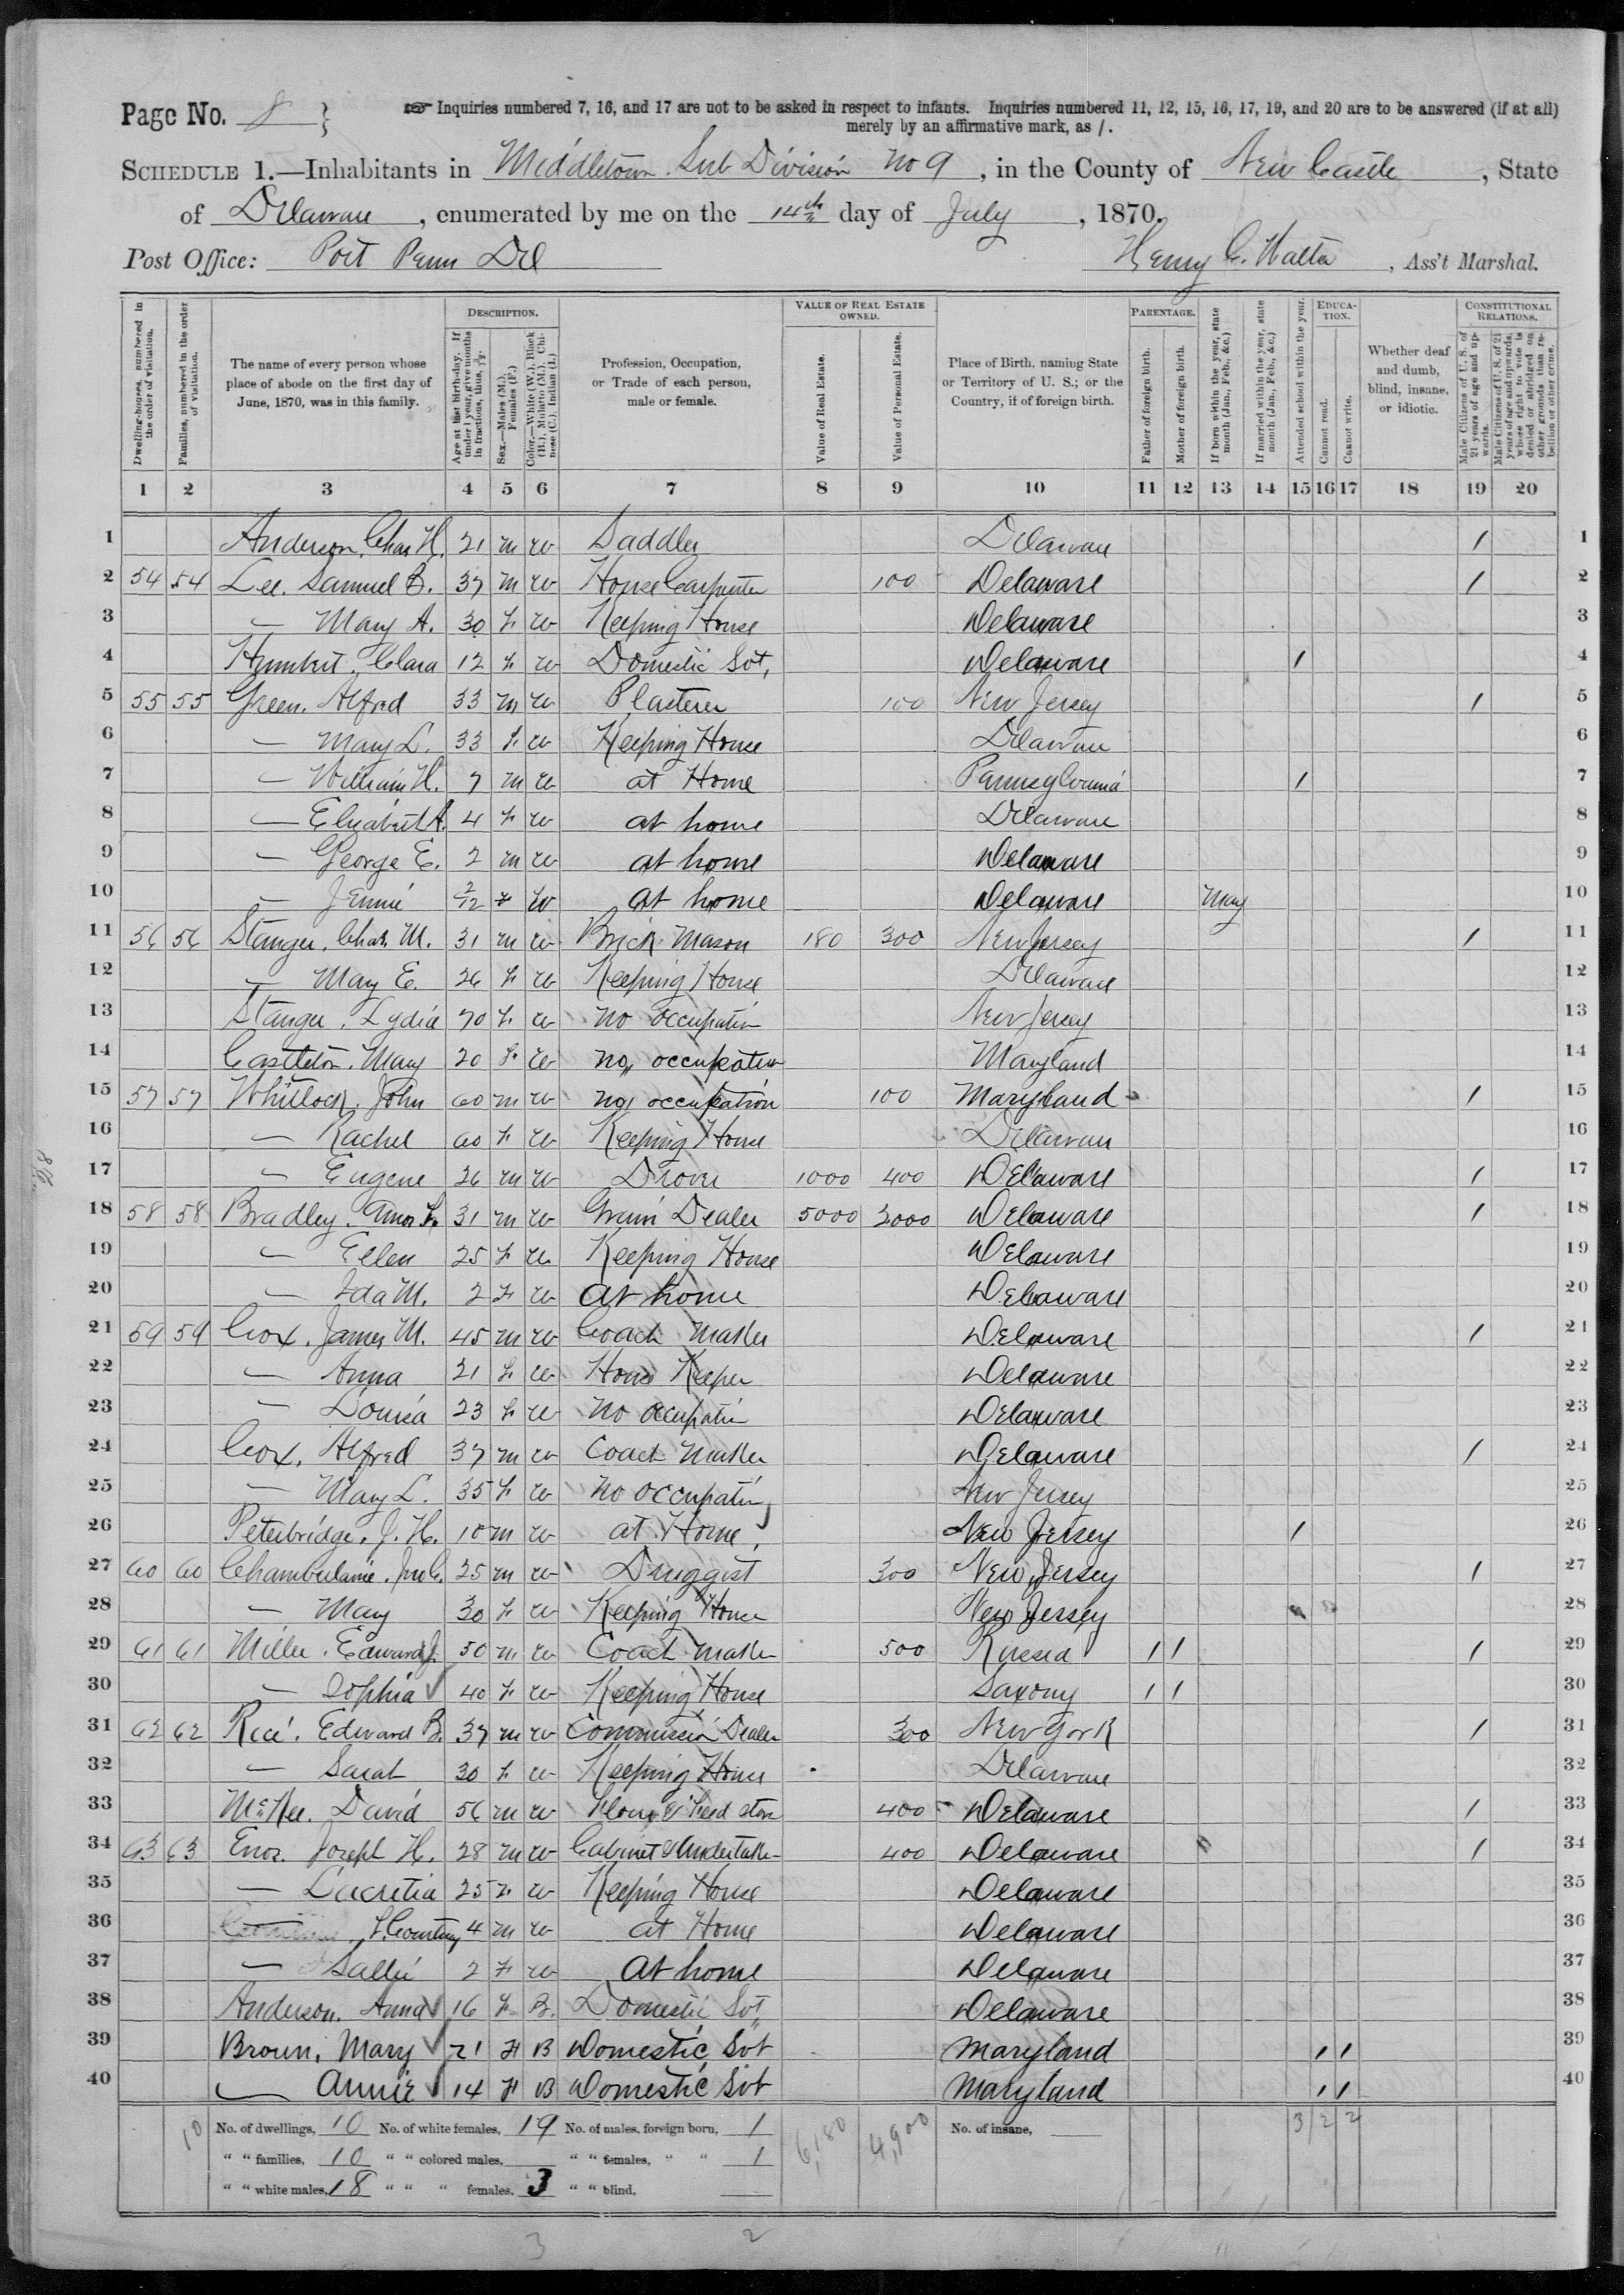 Page No. 8 }
Inquiries numbered 7, 16, and 17 are not to be asked in respect to infants. Inquiries numbered 11, 12, 15, 16, 17, 19, and 20 are to be answered (if at all)
merely by an affirmative mark, as /.
SCHEDULE 1.—Inhabitants in Middletown Sub Division No 9, in the County of New Castle, State
of Delaware, enumerated by me on the 14th day of July, 1870.
Post Office: Port Penn Del Henry C. Walter, Ass't Marshal.
Dwelling-houses, numbered in the order of visitation.
Families, numbered in the order of visitation.
The name of every person whose place of abode on the first day of June, 1870, was in this family.
DESCRIPTION.
Age at last birth-day. If under 1 year, give months in fractions, thus, 3/12.
Sex.—Males (M.), Females (F.)
Color.—White (W.), Black (B.), Mulatto (M.), Chinese (C.), Indian (I.)
Profession, Occupation, or Trade of each person, male or female.
VALUE OF REAL ESTATE OWNED.
Value of Real Estate.
Value of Personal Estate.
Place of Birth, naming State or Territory of U. S.; or the Country, if of foreign birth.
PARENTAGE.
Father of foreign birth.
Mother of foreign birth.
If born within the year, state month (Jan., Feb., &c.)
If married within the year, state month (Jan., Feb., &c.)
Attended school within the year.
EDUCATION.
Cannot read.
Cannot write.
Whether deaf and dumb, blind, insane, or idiotic.
CONSTITUTIONAL RELATIONS.
Male Citizens of U. S. of 21 years of age and upwards.
Male Citizens of U. S. of 21 years of age and upwards, whose right to vote is denied or abridged on other grounds than rebellion or other crime.
1 2 3 4 5 6 7 8 9 10 11 12 13 14 15 16 17 18 19 20
1 Anderson, Chas H. 21 m w Saddler Delaware / 1
2 54 54 Lee. Samuel B. 37 m w House Carpenter 100 Delaware / 2
3 — Mary A. 30 F. w Keeping House Delaware 3
4 Humbert, Clara 12 F w Domestic Svt, Delaware / 4
5 55 55 Green. Alfred 33 m w Plasterer 100 New Jersey / 5
6 — Mary L. 33 F. w Keeping House Delaware 6
7 — William H. 7 m w at Home Pennsylvania / 7
8 — Elizabeth A. 4 F w at home Delaware 8
9 — George E. 2 m w at home Delaware 9
10 — Jennie 2/12 F w at home Delaware May 10
11 56 56 Stanger, Chas. M. 31 m w Brick Mason 180 300 New Jersey / 11
12 — Mary E. 26 F w Keeping House Delaware 12
13 Stanger. Lydia 70 F. w no occupation New Jersey 13
14 Castleton. Mary 20 F w no occupation Maryland 14
15 57 57 Whitlock. John 60 m w no occupation 100 Maryland / 15
16 — Rachel 60 F w Keeping House Delaware 16
17 — Eugene 26 m w Drover 1000 400 Delaware / 17
18 58 58 Bradley. Amos F. 31 m w Grain Dealer 5000 2000 Delaware / 18
19 — Ellen 25 F w Keeping House Delaware 19
20 — Ida M. 2 F w at home Delaware 20
21 59 59 Cox. James M. 45 m w Coach Maker Delaware / 21
22 — Anna 21 F w House Keeper Delaware 22
23 — Louisa 23 F w no occupation Delaware 23
24 Cox, Alfred 37 m w Coach Maker Delaware / 24
25 — Mary L. 35 F w no occupation New Jersey 25
26 Peterbridge, J. H. 10 m w at Home New Jersey / 26
27 60 60 Chamberlaine. 25 m w Druggist 300 New Jersey / 27
28 — Mary 30 F w Keeping House New Jersey 28
29 61 61 Miller. Edward J. 50 m w Coach Maker 500 Russia / / / 29
30 — Sophia 40 F w Keeping House Saxony / / 30
31 62 62 Rice. Edward B. 37 m w Commission Dealer 300 New York / 31
32 — Sarah 30 F w Keeping House Delaware 32
33 McKee. David 56 m w Flour & Feed store 400 Delaware / 33
34 63 63 Enos. Joseph H. 28 m w Cabinet & Undertaker 400 Delaware / 34
35 — Lucretia 25 F w Keeping House Delaware 35
36 F. Courtney 4 m w at Home Delaware 36
37 — Sallie 2 F w at home Delaware 37
38 Anderson. Anna 16 F B. Domestic Svt Delaware 38
39 Brown, Mary 21 F B Domestic Svt Maryland / / 39
40 — Annie 14 F B Domestic Svt Maryland / / 40
10 No. of dwellings, 10 No. of white females, 19 No. of males, foreign born, 1 6,180 4,900 No. of insane, 3 2 2
" " families, 10 " " colored males, " " females, " " 1
" " white males, 18 " " " females, 3 " " blind,
3 2